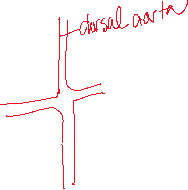 dorsal aorta